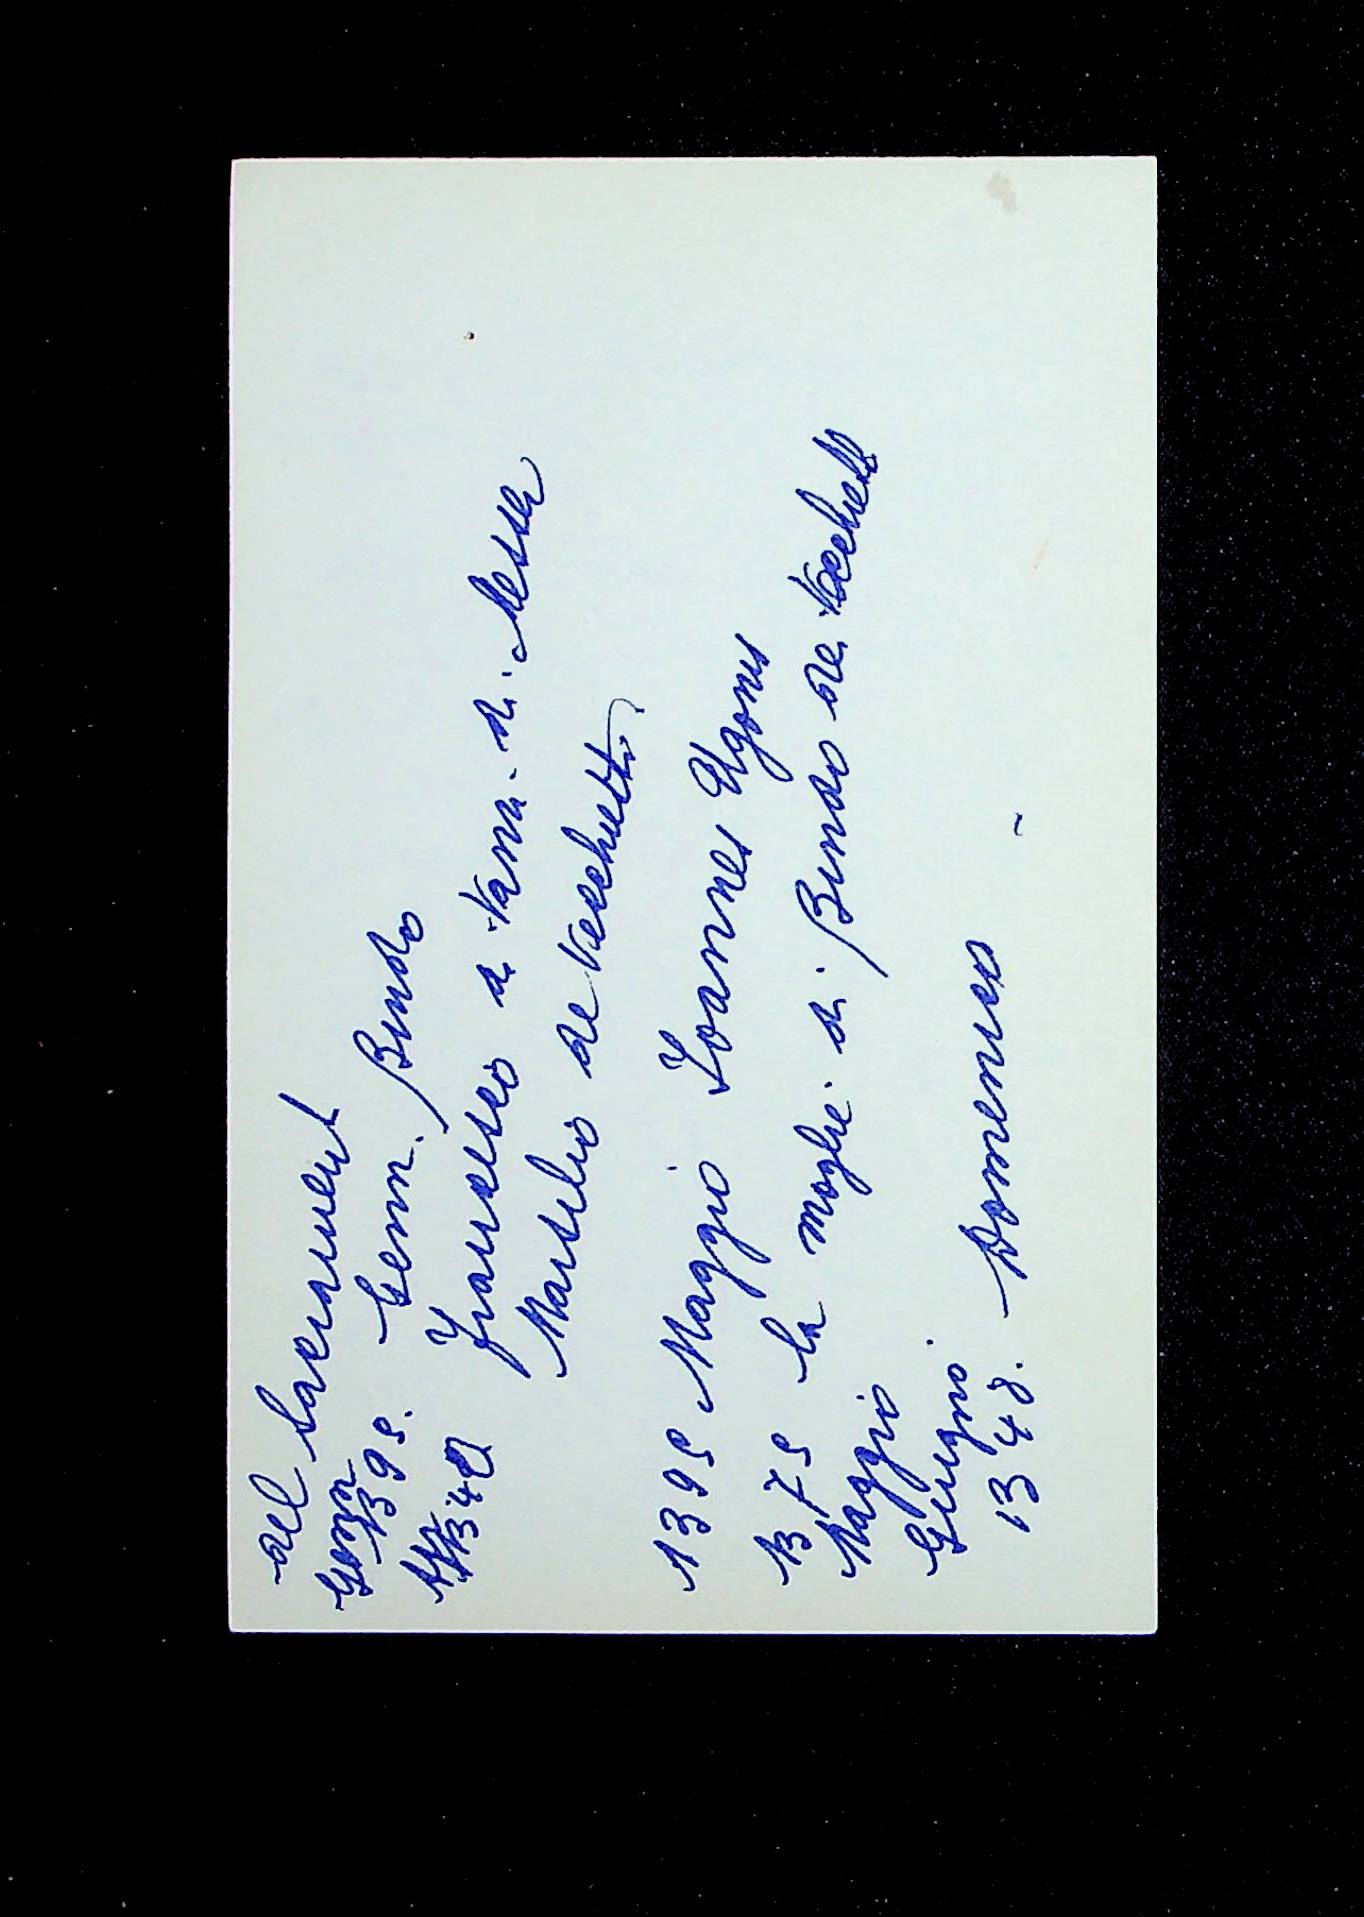 del Sacrament
Genn. Bindo
1395.
1340 Francesco di Vanni di Messer
Marsilio de Vecchietti
1395 Maggio Ioannes Ugonis
1375 la moglie di Bindo de Vecchietti
Maggio
Giugno
1348. Domenico